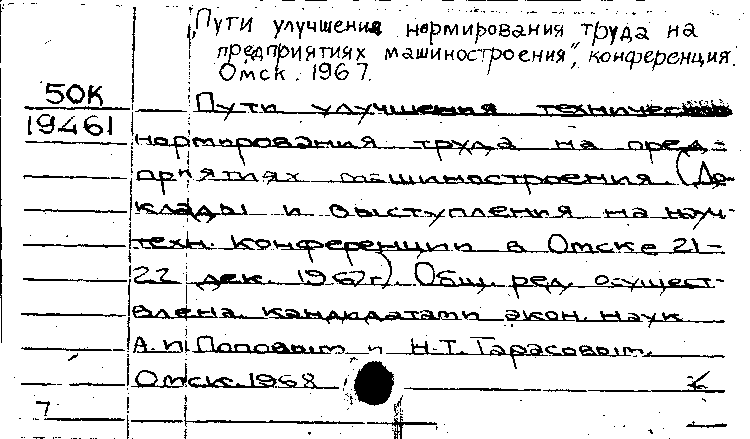 „Пути улучшения нормирования труда на
предприятиях машиностроения", конференция.
Омск. 1967.
50К
19461
Пути улучшения техническо
нормирования труда на пред-
приятиях машиностроения. (До-
клады и выступления на науч-
техн. конференции в Омске 21-
22 дек. 1967г). Общ. ред. осущест-
влена кандидатами экон. наук
А.П. Поповым и Н.Т. Тарасовым.
Омск. 1968
7